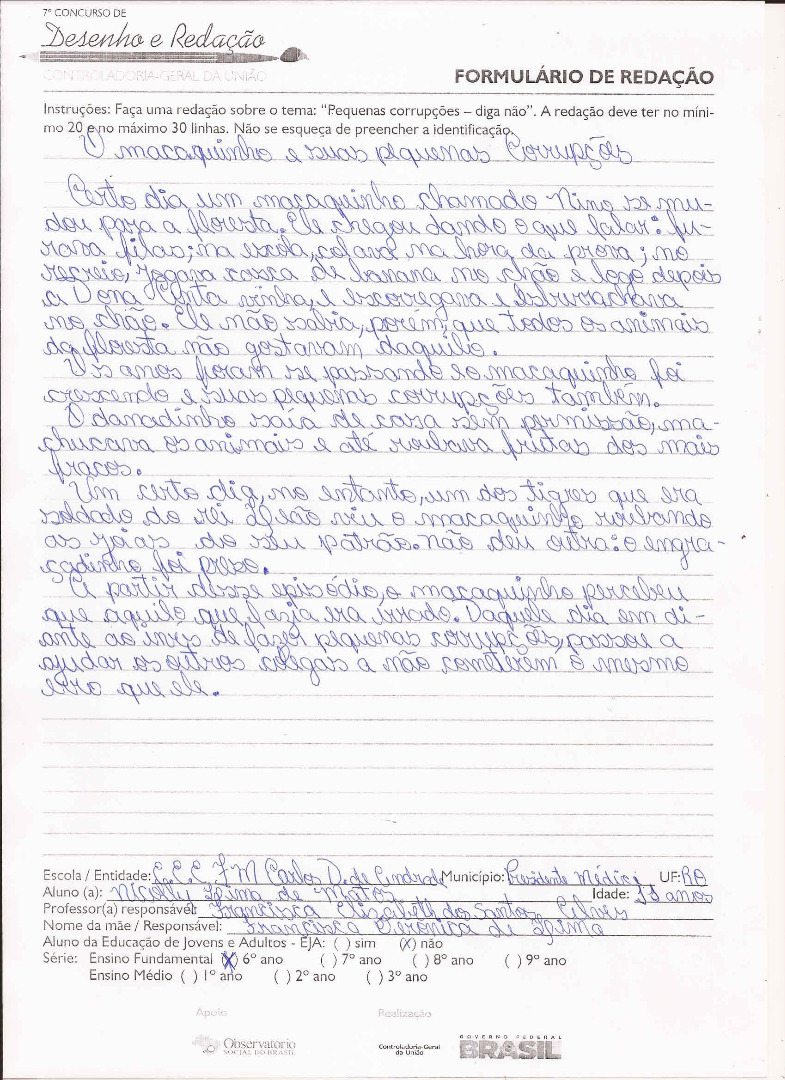 7º CONCURSO DE
Desenho e Redação
CONTROLADORIA-GERAL DA UNIÃO
FORMULÁRIO DE REDAÇÃO
Instruções: Faça uma redação sobre o tema: "Pequenas corrupções – diga não". A redação deve ter no míni-
mo 20 e no máximo 30 linhas. Não se esqueça de preencher a identificação.
O macaquinho e suas pequenas Corrupções
Certo dia um macaquinho chamado Nino se mu-
dou para a floresta. Ele chegou dando o que falar: fu-
rava filas; na escola, colava na hora da prova; no
recreio, jogava casca de banana no chão e logo depois
a Dona vinha, e escorregava e esburrachava
no chão. Ele não sabia, porém, que todos os animais
da floresta não gostavam daquilo.
Os anos foram se passando e o macaquinho foi
crescendo e suas pequenas corrupções também.
O danadinho saía de casa sem permissão, ma-
chucava os animais e até roubava frutas dos mais
fracos.
Um certo dia, no entanto, um dos tigres que era
soldado do rei Leão viu o macaquinho roubando
as joias do seu patrão. Não deu outra: o engra-
çadinho foi preso.
A partir desse episódio, o macaquinho percebeu
que aquilo que fazia era errado. Daquele dia em di-
ante ao invés de fazer pequenas corrupções, passou a
ajudar os outros colegas a não cometerem o mesmo
erro que ele.
Escola / Entidade: E.E.E.F.M Carlos D. de Andrade Município: Presidente Médici UF: RO
Aluno (a): Lima de Matos Idade: 11 anos
Professor(a) responsável: Francisca Elizabeth dos Santos Alves
Nome da mãe / Responsável: Francisca Verônica de Lima
Aluno da Educação de Jovens e Adultos - EJA: ( ) sim (X) não
Série: Ensino Fundamental (X) 6º ano ( ) 7º ano ( ) 8º ano ( ) 9º ano
Ensino Médio ( ) 1º ano ( ) 2º ano ( ) 3º ano
Apoio Realização
Observatório SOCIAL DO BRASIL
Controladoria-Geral da União
GOVERNO FEDERAL
BRASIL